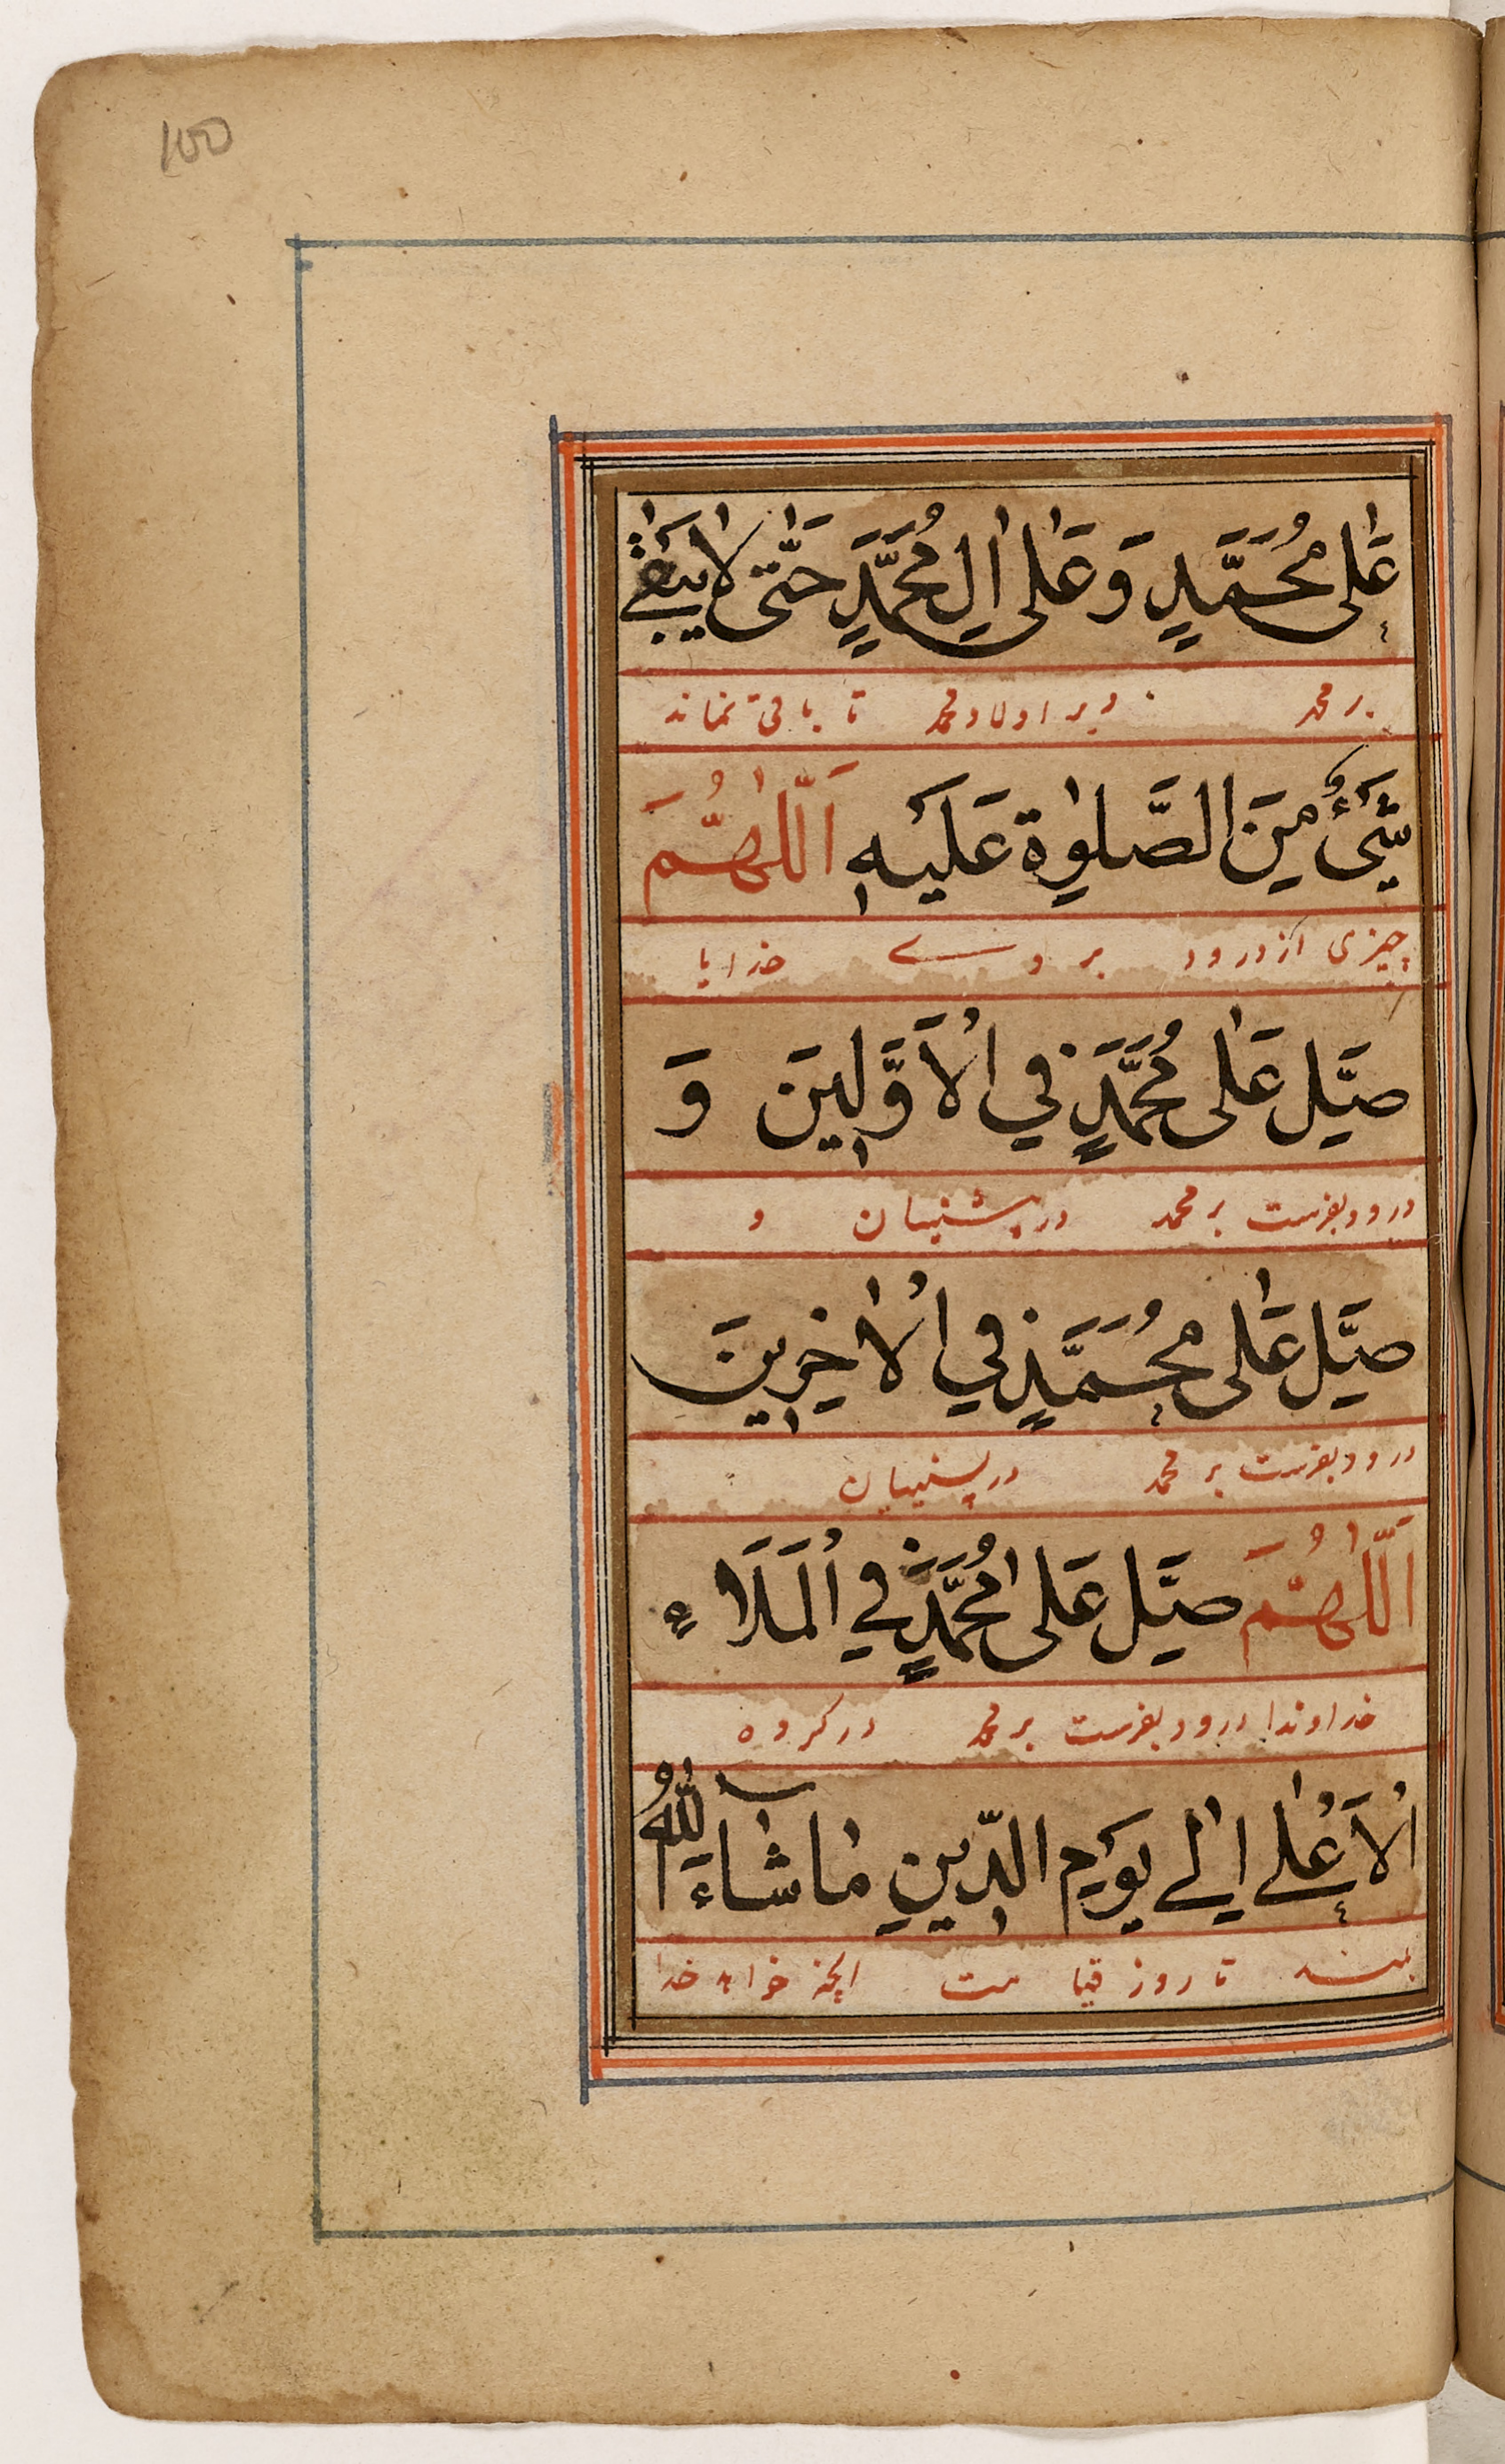 100
عَلٰى مُحَمَّدٍ وَ عَلٰى اٰلِ مُحَمَّدٍ حَتّٰى لَا يَبْقٰى
بر محمد و بر اولاد محمد تا باقی نماند
شَيْءٌ مِنَ الصَّلٰوةِ عَلَيْهِ اَللّٰهُمَّ
چیزی از درود بر وے خدایا
صَلِّ عَلٰى مُحَمَّدٍ فِي الْاَوَّلِينَ وَ
درود بفرست بر محمد در پیشنیان و
صَلِّ عَلٰى مُحَمَّدٍ فِي الْاٰخِرِينَ
درود بفرست بر محمد در پسینیان
اَللّٰهُمَّ صَلِّ عَلٰى مُحَمَّدٍ فِي الْمَلَاءِ
خداوندا درود بفرست بر محمد در کروه
الْاَعْلٰے اِلٰے يَوْمِ الدِّينِ مَا شَآءَ اللّٰهُ
بلند تا روز قیامت انچه خواهد خدا